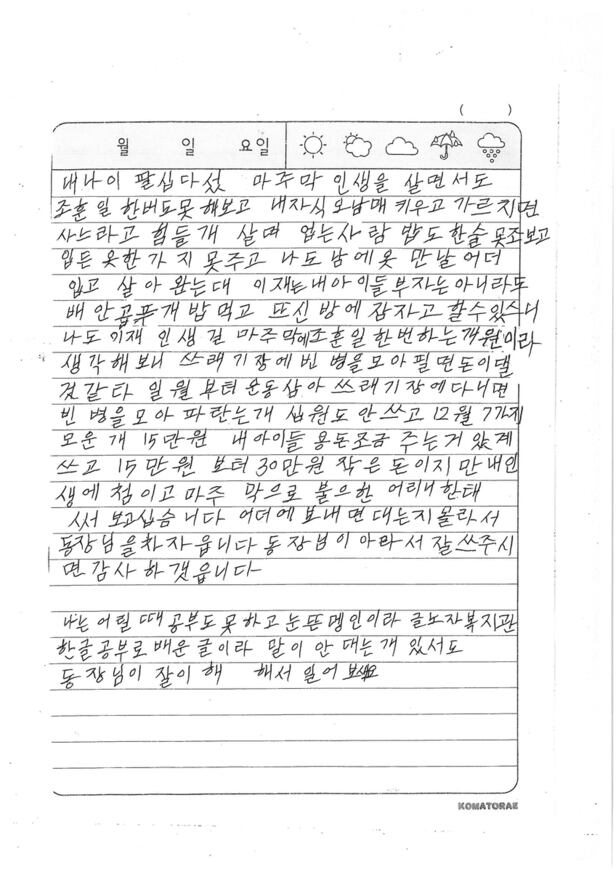 ( )
월 일 요일
내나이 팔십다섯 마주막 인생을 살면서도
조훈일 한번도못 해보고 내자식 오남매 키우고 가르치면
사느라고 힘들개 살며 업는사람 밥도한술 못조보고
입든 옷한가지 못주고 나도 남에옷 만날 어더
입고 살아 완는대 이재는 내아이들 부자는 아니라도
배 안곱푸개 밥먹고 뜨신 방에 잠자고 할수있스니
나도 이재 인생 길 마주막에 조훈일 한번하는개 원이라
생각해 보니 쓰래기장에 빈 병을모아 필면 돈이댈
겄같다 일월부터 운동삼아 쓰래기장에다니면
빈 병을모아 파탄는개 십원도 안쓰고 12월 7가지
모운개 15만원 내아이들 용돈조금 주는거 았계
쓰고 15만원 보터 30만원 작은 돈이지만 내인
생에 첨이고 마주 막으로 불으한 어리내한태
써 보고십습니다 어더에 보내면 대는지몰라서
동장님을차자 읍니다 동장님이 아라서 잘쓰주시
면 감사하갯읍니다
나는 어릴 때 공부도못하고 눈뜬멩인이라 글노자복지관
한글공부로 배운 글이라 말이 안 대는개 있서도
동장님이 잘이해 해서 일어 보새요
KOMATORAE